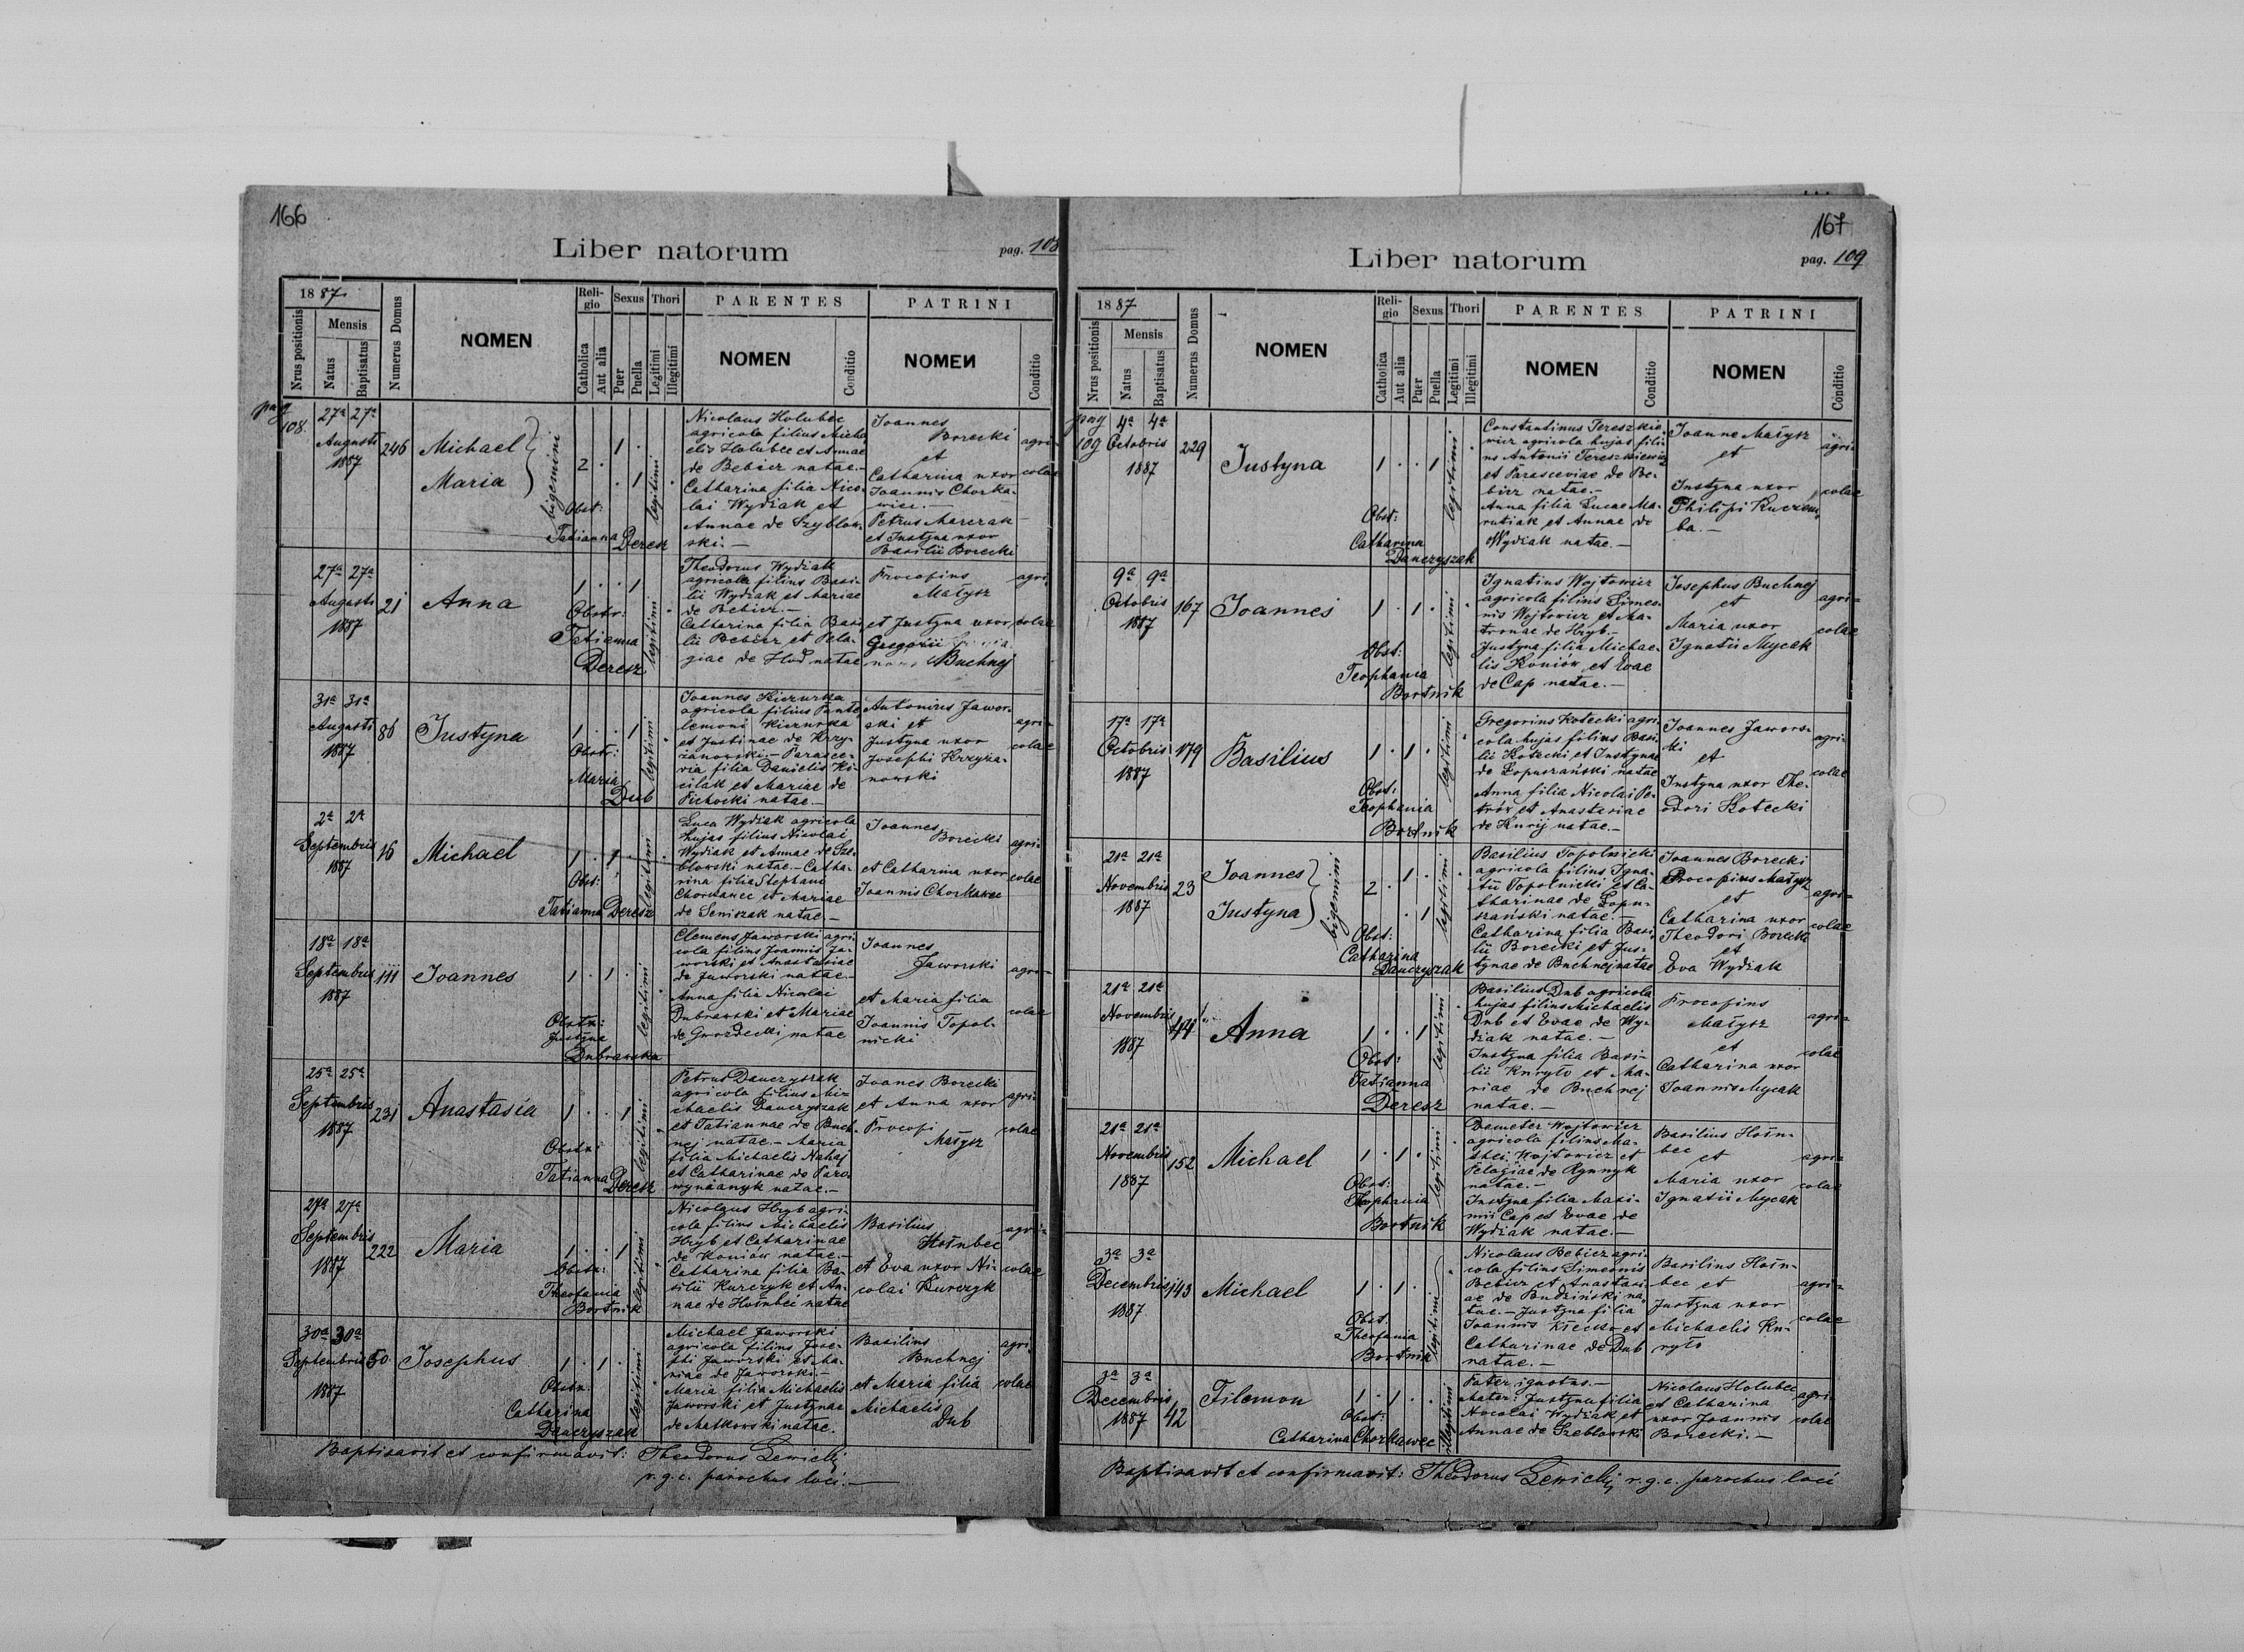 166
Liber natorum
pag. 108
1887
Nrus positionis
Mensis
Natus
Baptisatus
Numerus Domus
NOMEN
Religio
Catholica
Aut alia
Sexus
Puer
Puella
Thori
Legitimi
Illegitimi
PARENTES
NOMEN
Conditio
PATRINI
NOMEN
Conditio
pag
108.
27a 27a
Augusti
1887
246
Michael
Maria
bigemini
2 .
1 .
. 1
legitimi
Obst:
Tatianna Deresz
Nicolaus Holubec
agricola filius Micha
elis Holubec et Annae
de Bebicz natae.-
Catharina filia Nico-
lai Wydiak et
Annae de Szyblow-
ski.-
Joannes
Borecki
et
Catharina uxor
Joannis Chorka-
wiec.-
Petrus Marczak
et Justyna uxor
Basilii Borecki
agri-
colae
27a 27a
Augusti
1887
21
Anna
1 . . 1
legitimi
Obstr:
Tatianna
Deresz
Theodorus Wydiak
agricola filius Basi-
lii Wydiak et Mariae
de Bebicz.-
Catharina filia Basi
lii Bebicz et Pela-
giae de Hod natae
Procopius
Małysz
et Justyna uxor
Gregorii
Buchnej
agri-
colae
31a 31a
Augusti
1887
86
Justyna
1 . . 1
legitimi
Obstr:
Maria
Dub
Joannes Kiczurka
agricola filius Pante
lemoni Kiczurka
et Justinae de Krzy-
żanowski.- Parasce-
via filia Danielis Ki-
cilak et Mariae de
Pichocki natae.-
Antonius Jawor-
ski et
Justyna uxor
Josephi Krzyża-
nowski
agri-
colae
2a 2a
Septembris
1887
16
Michael
1 . 1 .
legitimi
Obst:
Tatianna Deresz
Luca Wydiak agricola
hujas filius Nicolai
Wydiak et Annae de Sze-
blowski natae.- Catha-
rina filia Stephani
Chorkawec et Mariae
de Seniszak natae.-
Joannes
Borecki
et Catharina uxor
Joannis Chorkawec
agri-
colae
18a 18a
Septembris
1887
111
Joannes
1 . 1 .
legitimi
Obstr:
Justyna
Dubrawska
Clemens Jaworski agri
cola filius Joannis Ja-
worski et Anastasiae
de Jaworski natae.-
Anna filia Nicolai
Dubrawski et Mariae
de Gwozdecki natae
Joannes
Jaworski
et Maria filia
Joannis Topol-
nicki
agri-
colae
25a 25a
Septembris
1887
231
Anastasia
1 . . 1
legitimi
Obstr:
Tatianna Deresz
Petrus Danczyszak
agricola filius Mi-
chaelis Danczyszak
et Tatiannae de Buch-
nej natae.- Maria
filia Michaelis Nahaj
et Catharinae de
natae.-
Joanes Borecki
et Anna uxor
Procopi
Małysz
agri-
colae
27a 27a
Septembris
1887
222
Maria
1 . . 1
legitimi
Obstr:
Theofania
Bortnik
Nicolaus Hryb agri-
cola filius Michaelis
Hryb et Catharinae
de Koniów natae.-
Catharina filia Ba-
silii Kurczyk et An-
nae de Hołubec natae
Basilius
Hołubec
et Eva uxor Ni-
colai Kurczyk
agri-
colae
30a 30a
Septembris
1887
50
Josephus
1 . 1 .
legitimi
Obstr.
Catharina
Danczyszak
Michael Jaworski
agricola filius Jose-
phi Jaworski et Ma-
riae de Jaworski.-
Maria filia Michaelis
Jaworski et Justynae
de Matkowski natae.
Basilius
Buchnej
et Maria filia
Michaelis
Dub
agri-
colae
Baptisavit et confirmavit: Theodorus Lewicki
r.g.c. parochus loci.-
167
Liber natorum
pag. 109
1887
Nrus positionis
Mensis
Natus
Baptisatus
Numerus Domus
NOMEN
Religio
Catholica
Aut alia
Sexus
Puer
Puella
Thori
Legitimi
Illegitimi
PARENTES
NOMEN
Conditio
PATRINI
NOMEN
Conditio
pag
109
4a 4a
Octobris
1887
229
Justyna
1 . . 1
legitimi
Obst:
Catharina
Danczyszak
Constantinus Tereszkie-
wicz agricola hujas fili-
us Antonii Tereszkiewicz
et Parasceviae de Be-
bicz natae.-
Anna filia Lucae Ma-
rutiak et Annae de
Wydiak natae.-
Joanne Małysz
et
Justyna uxor
Philipi Kuczem-
ba.-
agri-
colae
9a 9a
Octobris
1887
167
Joannes
1 . 1 .
legitimi
Obst:
Teophania
Bortnik
Ignatius Wojtowicz
agricola filius Simeo-
nis Wojtowicz et Ma-
tronae de Hryb.-
Justyna filia Michae-
lis Koniów et Evae
de Cap natae.-
Josephus Buchnej
et
Maria uxor
Ignatii Mycak
agri-
colae
17a 17a
Octobris
1887
179
Basilius
1 . 1 .
legitimi
Obst:
Teophania
Bortnik
Gregorius Kotecki agri-
cola hujas filius Basi-
lii Kotecki et Justynae
de Łopuszański natae
Anna filia Nicolai Pe-
trów et Anastasiae
de Kurij natae.-
Joannes Jawors-
ki
et
Justyna uxor The-
odori Kotecki
agri-
colae
21a 21a
Novembris
1887
23
Joannes
Justyna
bigemini
2 .
1 .
. 1
legitimi
Obst:
Catharina
Danczyszak
Basilius Topolnicki
agricola filius Igna-
tii Topolnicki et Ca-
tharinae de Łopu-
szański natae.-
Catharina filia Basi-
lii Borecki et Jus-
tynae de Buchnej natae
Joannes Borecki
Procopius Małysz
et
Catharina uxor
Theodori Borecki
et
Eva Wydiak
agri-
colae
21a 21a
Novembris
1887
44
Anna
1 . . 1
legitimi
Obst:
Tatianna
Deresz
Basilius Dub agricola
hujas filius Michaelis
Dub et Evae de Wy-
diak natae.-
Justyna filia Basi-
lii Kuryło et Ma-
riae de Buchnej
natae.-
Procopius
Małysz
et
Catharina uxor
Joannis Mycak
agri-
colae
21a 21a
Novembris
1887
152
Michael
1 . 1 .
legitimi
Obst:
Theophania
Bortnik
Demeter Wojtowicz
agricola filius Ma-
thei Wojtowicz et
Pelagiae de Rynnyk
natae.-
Justyna filia Maxi-
mi Cap et Evae de
Wydiak natae.-
Basilius Hołu-
bec
et
Maria uxor
Ignatii Mycak
agri-
colae
3a 3a
Decembris
1887
143
Michael
1 . 1 .
legitimi
Obst.
Theofania
Bortnik
Nicolaus Bebicz agri-
cola filius Simeonis
Bebicz et Anastasi-
ae de Budziński na-
tae.- Justyna filia
Joannis et
Catharinae de Dub
natae.-
Basilius Hołu-
bec et
Justyna uxor
Michaelis Ku-
ryło
agri-
colae
3a 3a
Decembris
1887
42
Filemon
1 . 1 .
illegitimi
Obst:
Catharina Chorkawec
Pater ignotus.-
Mater: Justyna filia
Nicolai Wydiak et
Annae de Szeblowski
Nicolaus Holubec
et Catharina
uxor Joannis
Borecki.-
agri-
colae
Baptisavit et confirmavit: Theodorus Lewicki r.g.c. parochus loci